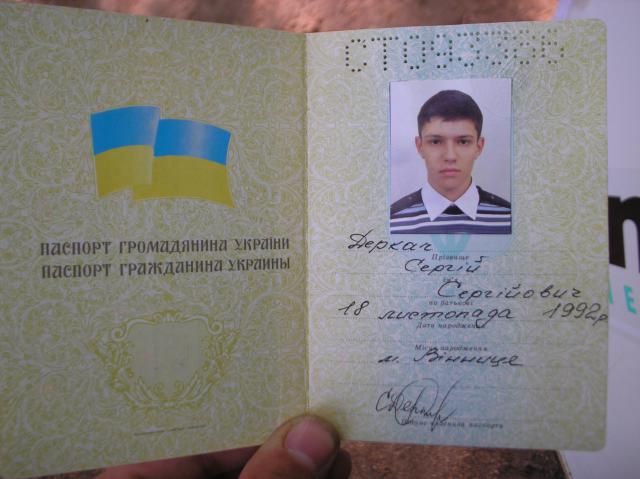 ПАСПОРТ ГРОМАДЯНИНА УКРАЇНИ
ПАСПОРТ ГРАЖДАНИНА УКРАИНЫ
Деркач
Прізвище
Сергій
Сергійович
по батькові
18 листопада 1992р
Дата народження
Місце народження
м. Вінниця
підпис власника паспорта